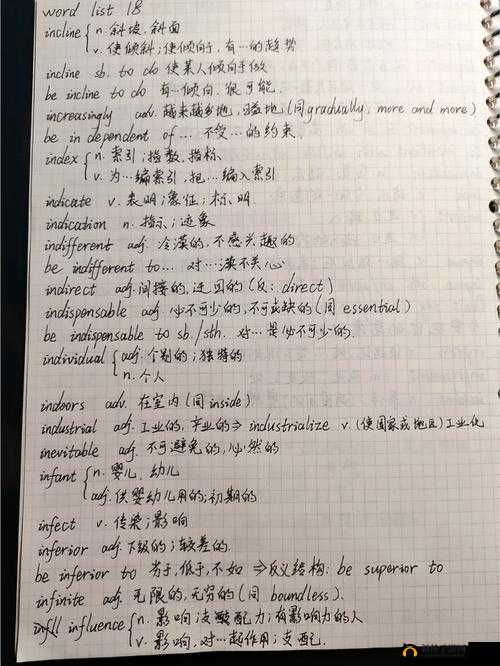 word list 18
incline { n. 斜坡, 斜面
v. 使倾斜; 使倾向于, 有…的趋势
incline sb. to do 使某人倾向于做
be incline to do 有…倾向, 很可能.
increasingly adv. 越来越多地, 渐增地 (同gradually, more and more)
be in dependent of … 不受…的约束.
index { n. 索引; 指数, 指标
v. 为…编索引, 把…编入索引
indicate v. 表明; 象征; 标明
indication n. 指示; 迹象
indifferent adj. 冷漠的, 不感兴趣的
be indifferent to … 对…漠不关心
indirect adj. 间接的, 迂回的 (反: direct)
indispensable adj. 必不可少的, 不可或缺的 (同 essential)
be indispensable to sb./sth. 对…是必不可少的.
individual { adj. 个别的; 独特的
n. 个人
indoors adv. 在室内 (同inside)
industrial adj. 工业的, 产业的 ⇒ industrialize v. (使国家或地区) 工业化
inevitable adj. 不可避免的, 必然的
infant { n. 婴儿, 幼儿
adj. 供婴幼儿用的; 初期的
infect v. 传染; 影响
inferior adj. 下级的; 较差的.
be inferior to 劣于, 低于, 不如 ⇒ 反义结构: be superior to
infinite adj. 无限的, 无穷的 (同 boundless).
influence { n. 影响; 支配力; 有影响力的人
v. 影响, 对…起作用; 支配.